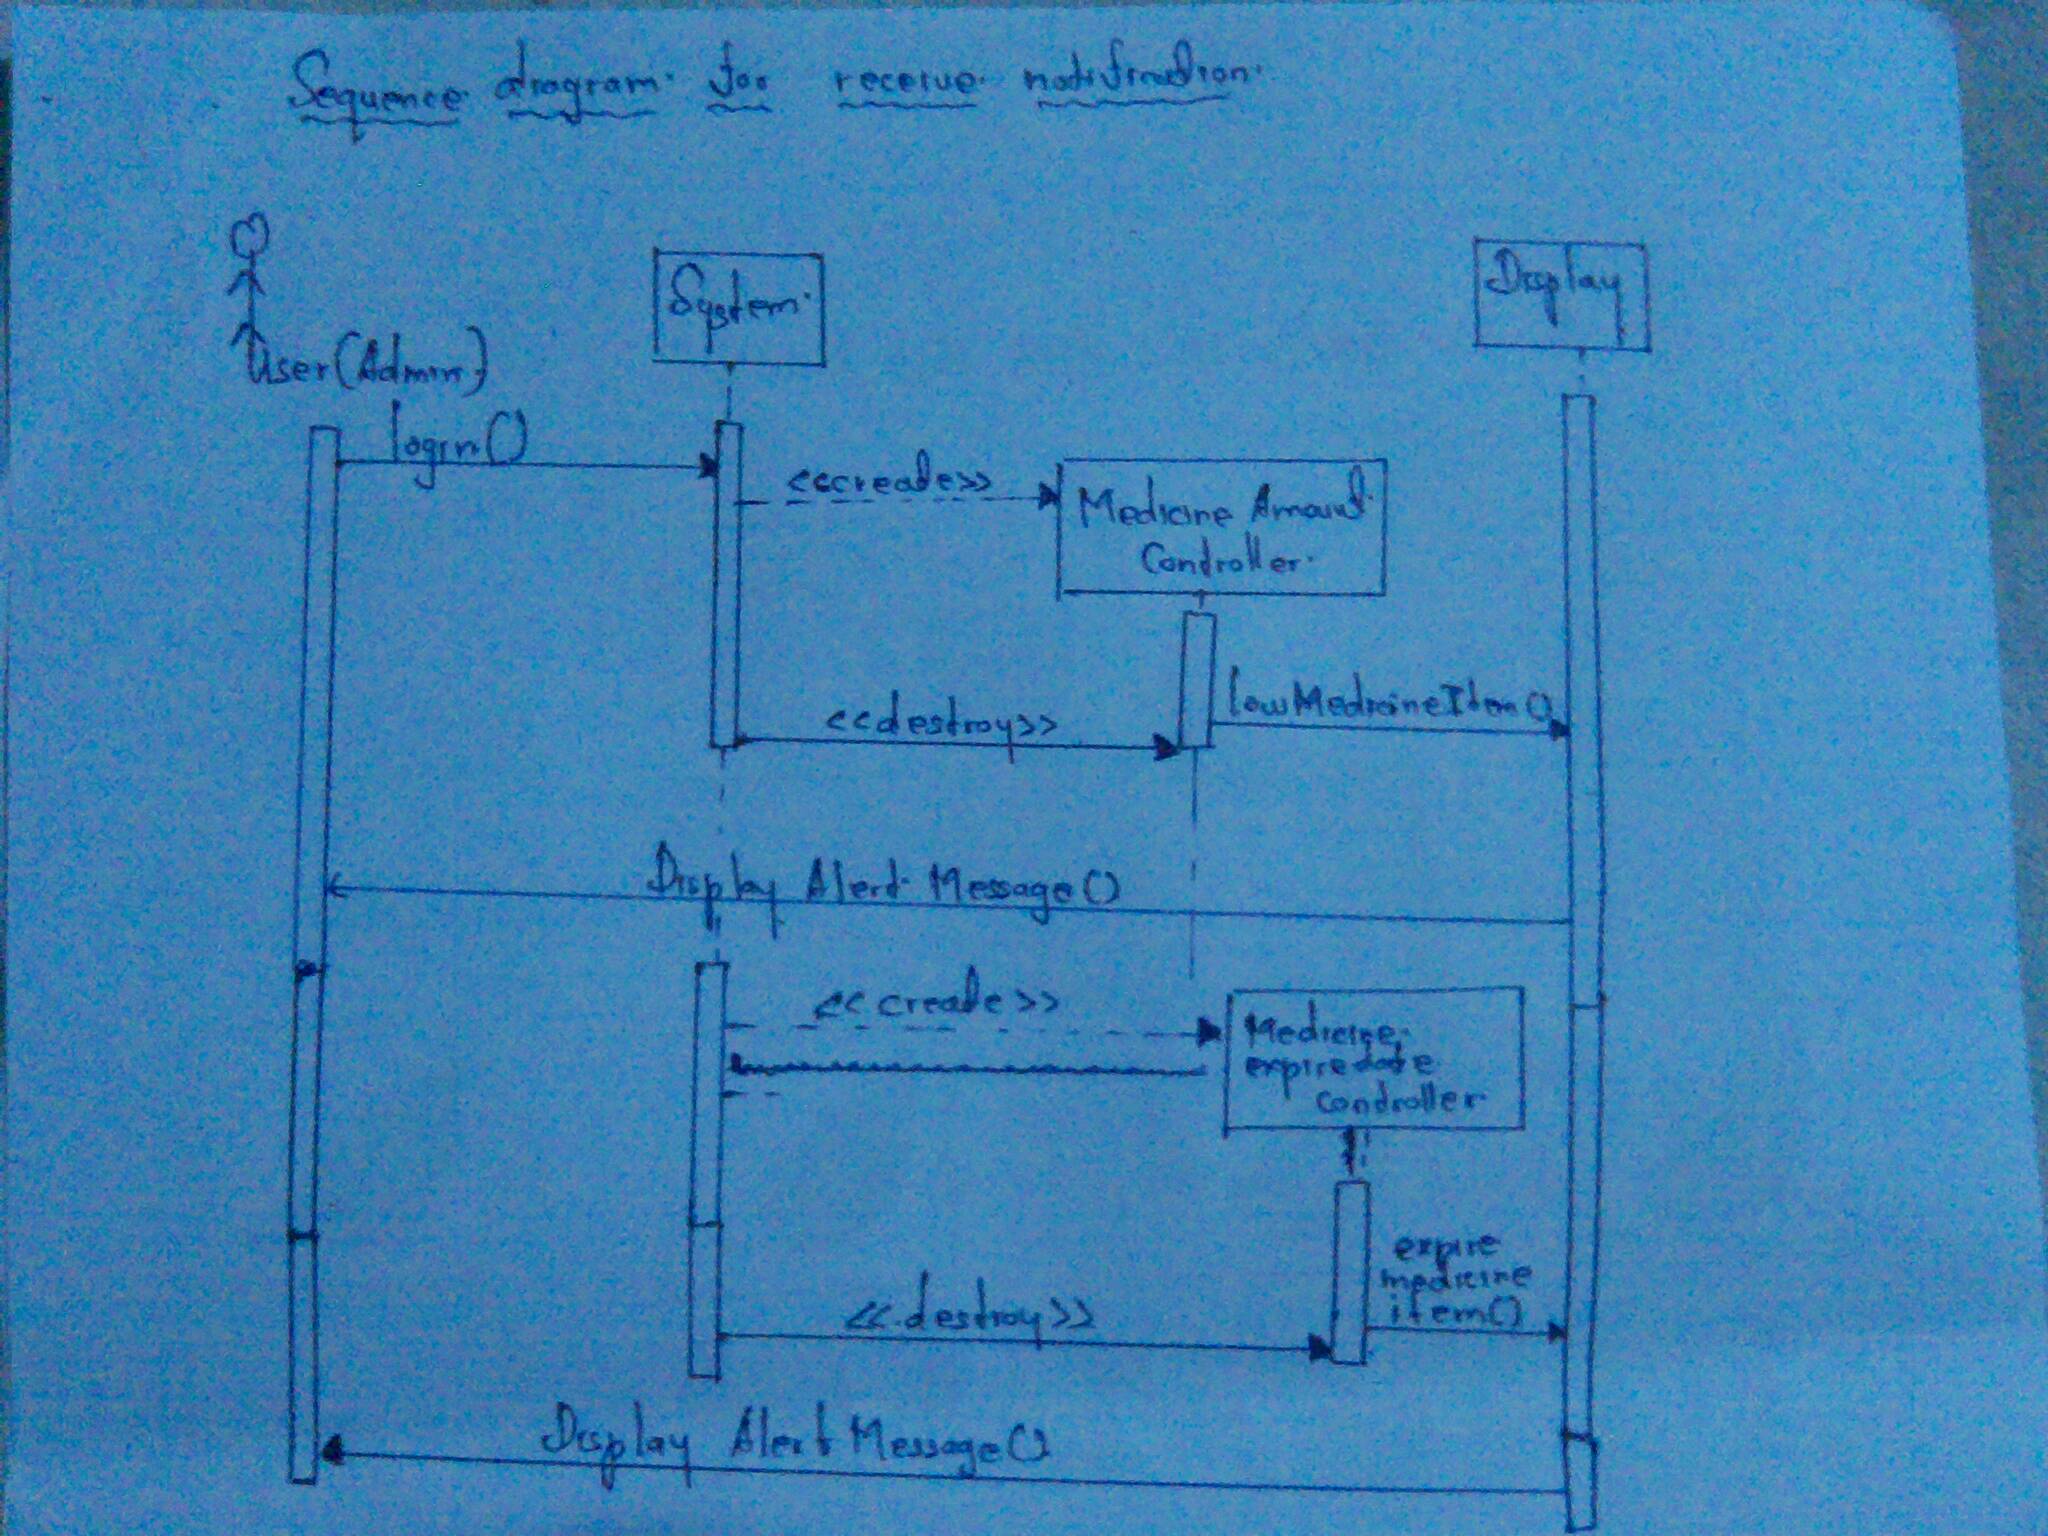 Sequence diagram for receive notification
System
Display
User(Admin)
login()
<<create>>
Medicine Amount
Controller
lowMedicineItem()
<<destroy>>
Display Alert Message()
<<create>>
Medicine
expiredate
controller
expire
medicine
item()
<<destroy>>
Display Alert Message()